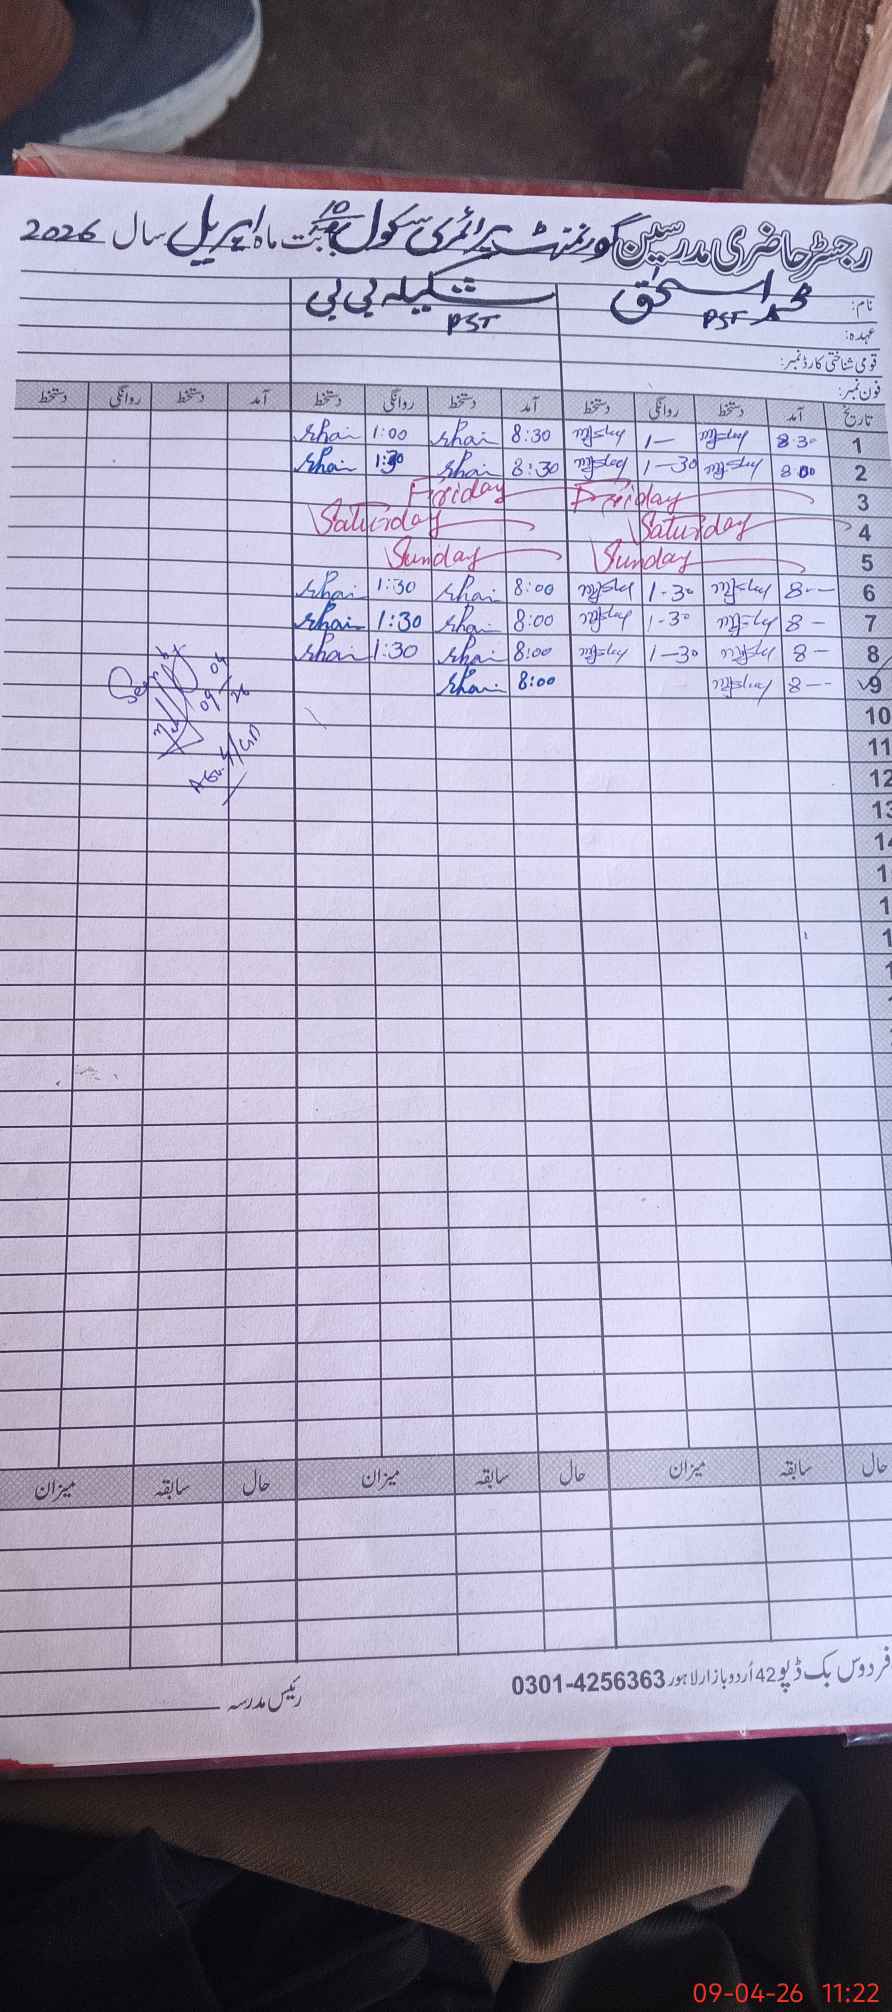 رجسٹر حاضری مدرسین گورنمنٹ پرائمری سکول 10 بابت ماہ اپریل سال 2026
نام: محمد اسحٰق شکیلہ بی بی
عہدہ: PST PST
قومی شناختی کارڈ نمبر:
فون نمبر:
تاریخ آمد دستخط روانگی دستخط آمد دستخط روانگی دستخط آمد دستخط روانگی دستخط
1 8:30 1— 8:30 Shai 1:00 Shai
2 8:00 1—30 8:30 Shai 1:30 Shai
3 Friday Friday
4 Saturday Saturday
5 Sunday Sunday
6 8-— 1-30 8:00 Shai 1:30 Shai
7 8— 1-30 8:00 Shai 1:30 Shai
8 8— 1—30 8:00 Shai 1:30 Shai
9 8-— 8:00 Shai
Seen by
09/04/26
10
11
12
13
حال سابقہ میزان حال سابقہ میزان حال سابقہ میزان
فردوس بک ڈپو 42 اُردو بازار لاہور 0301-4256363
رئیس مدرسہ
09-04-26 11:22